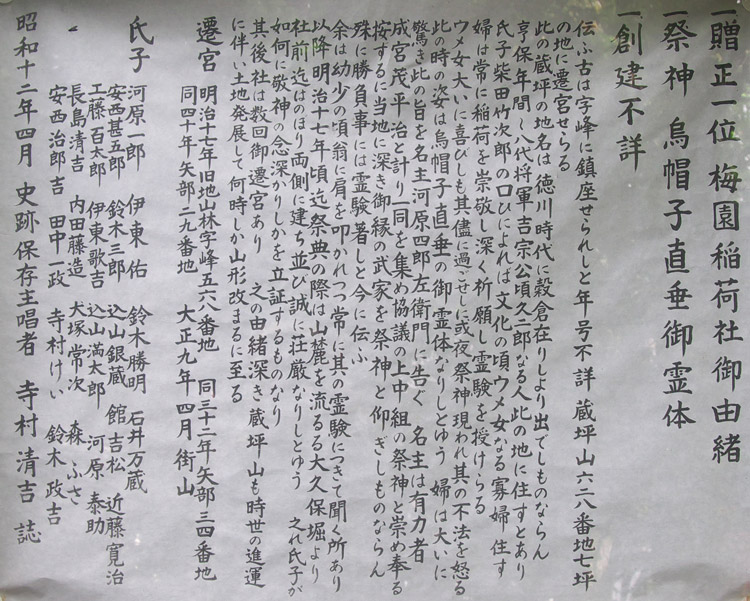 一贈正一位 梅園稲荷社御由緒
一祭神 烏帽子直垂御霊体
一創建不詳
伝ふ古は字峰に鎮座せられしと年号不詳 蔵坪山六二八番地七坪
の地に遷宮せらる
此の蔵坪の地名は徳川時代に穀倉在りしより出でしものならん
亨保年間、八代将軍吉宗公頃久二郎なる人此の地に住すとあり
氏子 柴田竹次郎の口ひによれば文化の頃ウメ女なる寡婦 住す
婦は常に稲荷を崇敬し深く祈願し霊験を授けらる
ウメ女大いに喜びしも其儘に過ごせしに或夜祭神現われ其の不法を怒る
此の時の姿は烏帽子直垂の御霊体なりしとゆう 婦は大いに
驚き此の旨を名主河原四郎左衛門に告ぐ 名主は有力者
成宮茂平治と計り一同を集め協議の上中組の祭神と崇め奉る
按するに当地に深き御縁の武家を祭神と仰ぎしものならん
殊に勝負事には霊験著しと今に伝ふ
余は幼少の頃翁に肩を叩かれつつ常に其の霊験につきて聞く所あり
以降明治十七年頃迄祭典の際は山麓を流るる大久保堀より
社前迄はのほり両側に建ち並び誠に荘厳なりしとゆう 之れ氏子が
如何に敬神の念深かりしかを立証するものなり
其後社は数回御遷宮あり 之の由緒深き蔵坪山も時世の進運
に伴い土地発展して何時しか山形改まるに至る
遷宮 明治十七年旧地山林字峰五六八番地 同三十二年矢部三四番地
同四十年矢部二九番地 大正九年四月街山
氏子 河原一郎 伊東佑 鈴木勝明 石井万蔵
安西甚五郎 鈴木三郎 込山銀蔵 舘吉松 近藤寛治
工藤百太郎 伊東歌吉 込山満太郎 河原泰助
長島清吉 内田藤造 犬塚常次 森ふさ
安西治郎吉 田中一政 寺村けい 鈴木政吉
昭和十二年四月 史跡保存主唱者 寺村清吉 誌